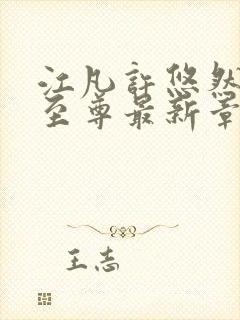 江凡許悠然
至尊最新章
王志